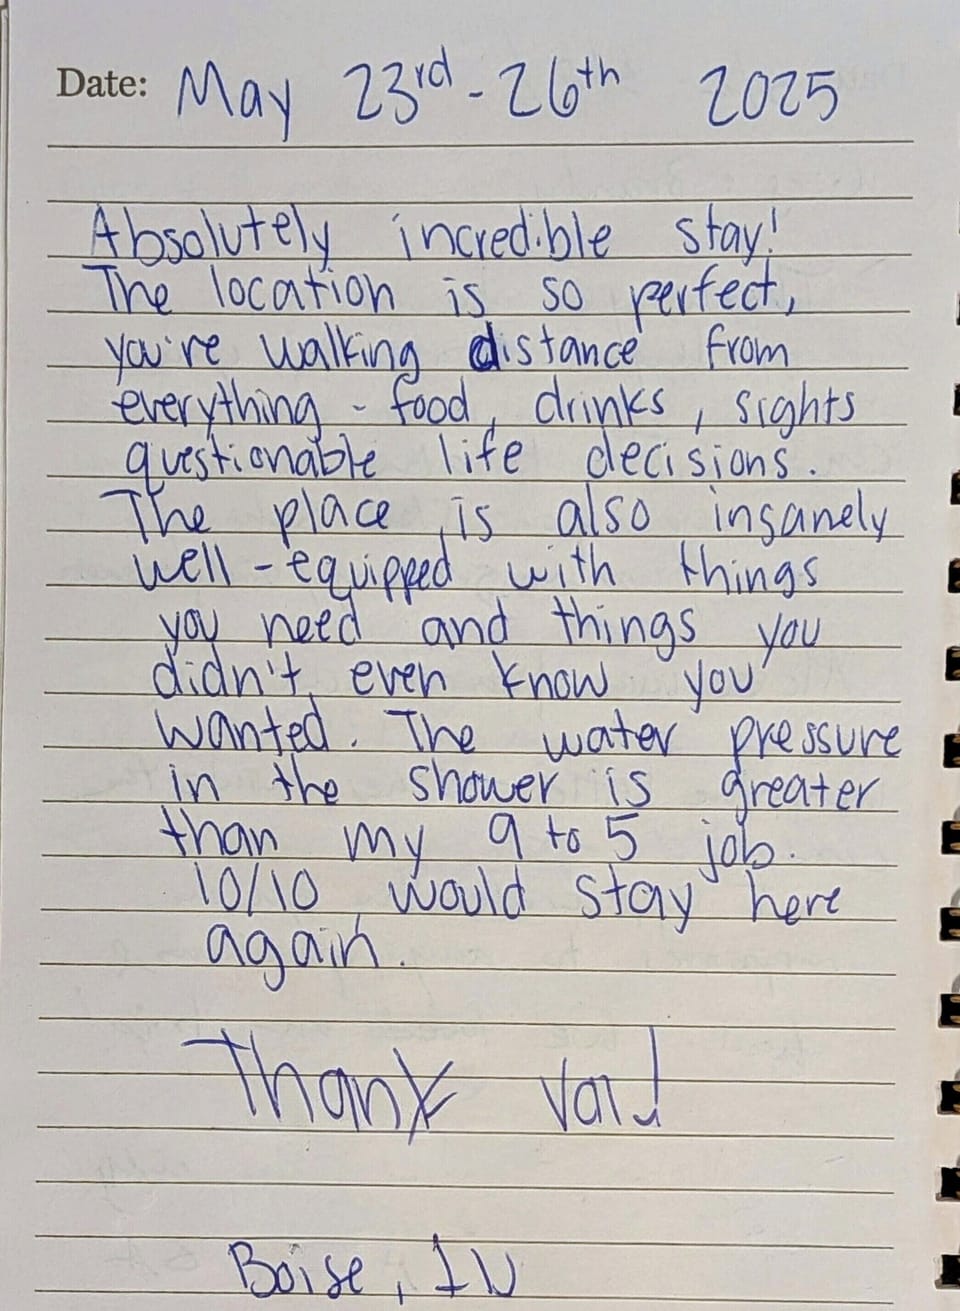 Date: May 23rd - 26th 2025
Absolutely incredible stay!
The location is so perfect,
you're walking distance from
everything - food, drinks, sights
questionable life decisions.
The place is also insanely
well-equipped with things
you need and things you
didn't even know you
wanted. The water pressure
in the shower is greater
than my 9 to 5 job.
10/10 would stay here
again.
Thank
Boise,